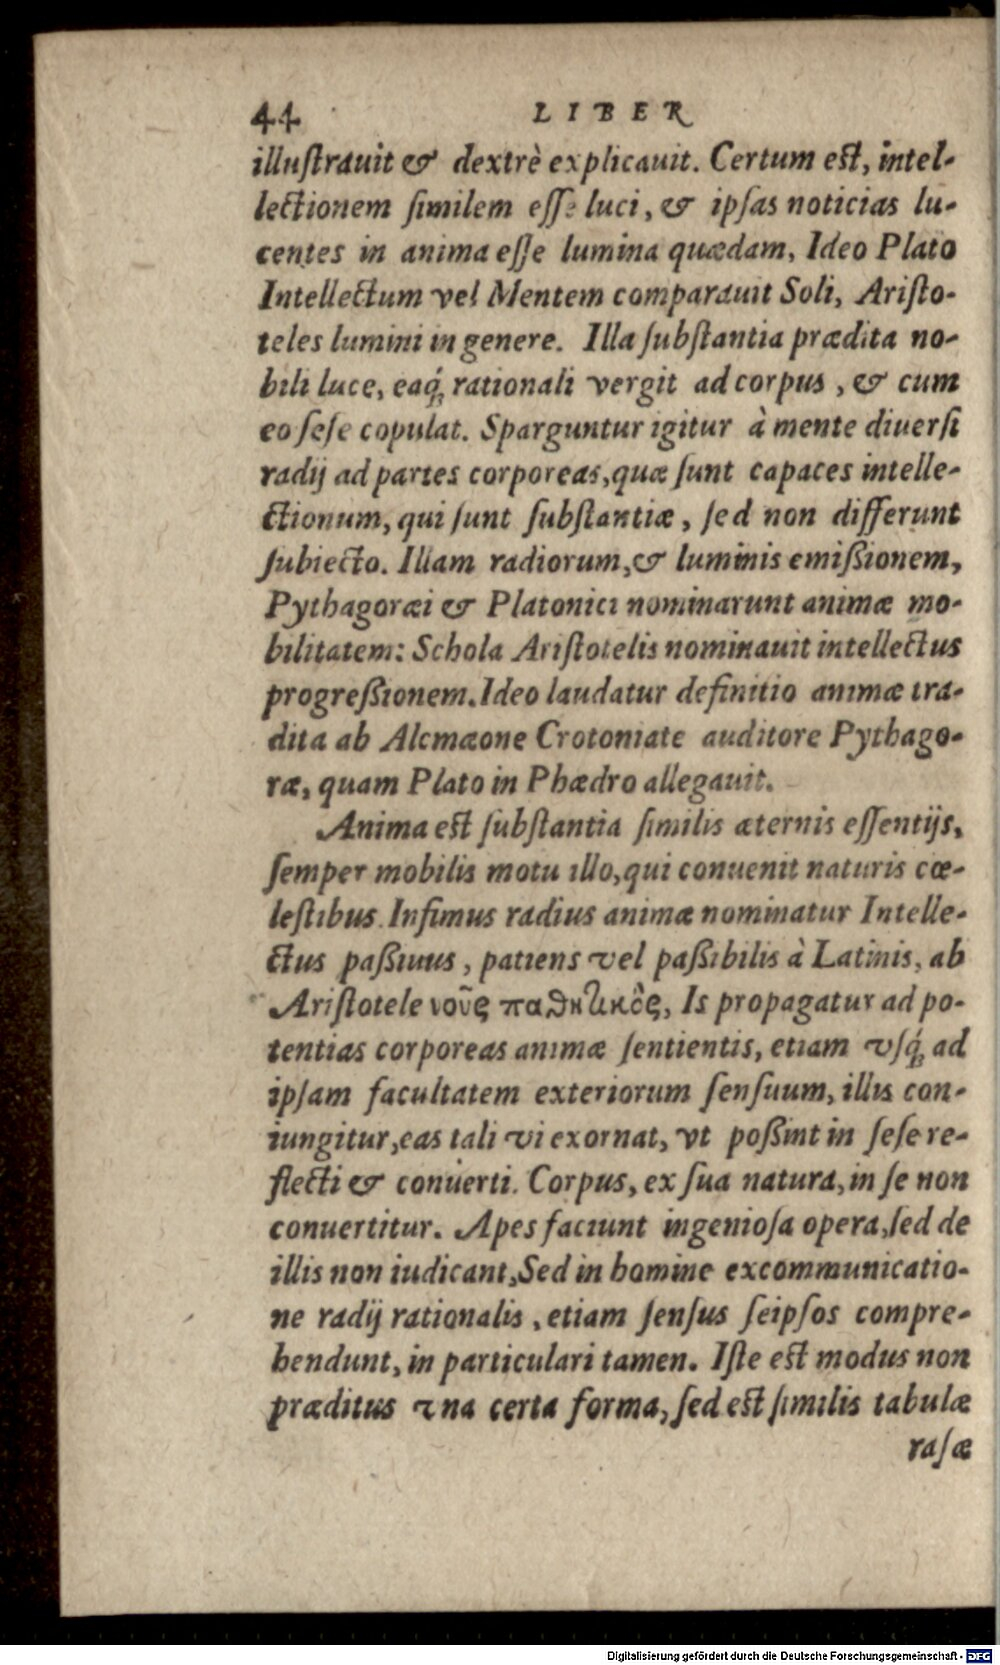 44 LIBER
illuſtrauit & dextrè explicauit. Certum eſt, intel-
lectionem ſimilem eſſe luci, & ipſas noticias lu-
centes in anima eſſe lumina quædam, Ideo Plato
Intellectum vel Mentem comparauit Soli, Ariſto-
teles lumini in genere. Illa ſubſtantia prædita no-
bili luce, eaq́; rationali vergit ad corpus, & cum
eo ſeſe copulat. Sparguntur igitur à mente diuerſi
radij ad partes corporeas, quæ ſunt capaces intelle-
ctionum, qui ſunt ſubſtantiæ, ſed non differunt
ſubiecto. Illam radiorum, & luminis emiſsionem,
Pythagoræi & Platonici nominarunt animæ mo-
bilitatem: Schola Ariſtotelis nominauit intellectus
progreſsionem. Ideo laudatur definitio animæ tra-
dita ab Alcmæone Crotoniate auditore Pythago-
ræ, quam Plato in Phædro allegauit.
Anima eſt ſubſtantia ſimilis æternis eſſentijs,
ſemper mobilis motu illo, qui conuenit naturis cœ-
leſtibus. Infimus radius animæ nominatur Intelle-
ctus paſsiuus, patiens vel paſsibilis à Latinis, ab
Ariſtotele νοῦς παθητικὸς, Is propagatur ad po-
tentias corporeas animæ ſentientis, etiam vſq́; ad
ipſam facultatem exteriorum ſenſuum, illis con-
iungitur, eas tali vi exornat, vt poſsint in ſeſe re-
flecti & conuerti. Corpus, ex ſua natura, in ſe non
conuertitur. Apes faciunt ingenioſa opera, ſed de
illis non iudicant, Sed in homine excommunicatio-
ne radij rationalis, etiam ſenſus ſeipſos compre-
hendunt, in particulari tamen. Iſte eſt modus non
præditus vna certa forma, ſed eſt ſimilis tabulæ
raſæ
Digitalisierung gefördert durch die Deutsche Forschungsgemeinschaft - DFG